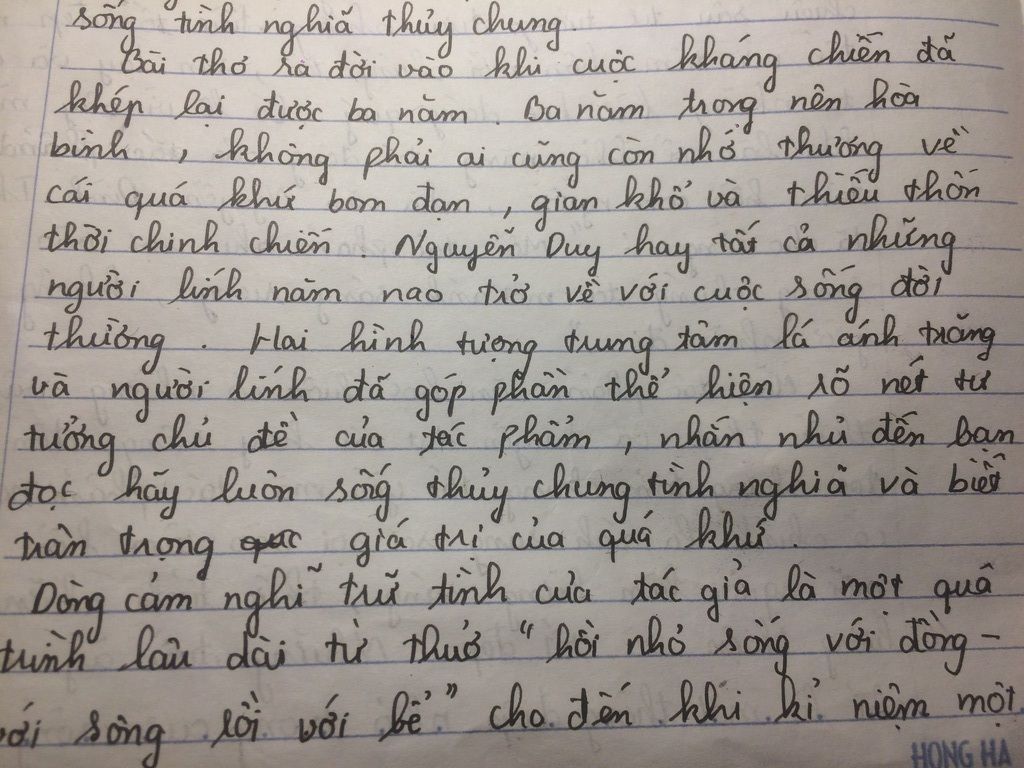 sống tình nghĩa thủy chung.
Bài thơ ra đời vào khi cuộc kháng chiến đã
khép lại được ba năm. Ba năm trong nền hòa
bình, không phải ai cũng còn nhớ thương về
cái quá khứ bom đạn, gian khổ và thiếu thốn
thời chinh chiến. Nguyễn Duy hay tất cả những
người lính năm nao trở về với cuộc sống đời
thường. Hai hình tượng trung tâm là ánh trăng
và người lính đã góp phần thể hiện rõ nét tư
tưởng chủ đề của tác phẩm, nhắn nhủ đến bạn
đọc hãy luôn sống thủy chung tình nghĩa và biết
trân trọng giá trị của quá khứ.
Dòng cảm nghĩ trữ tình của tác giả là một quá
trình lâu dài từ thuở "hồi nhỏ sống với đồng -
với sông rồi với bể" cho đến khi kỉ niệm một
HONG HA